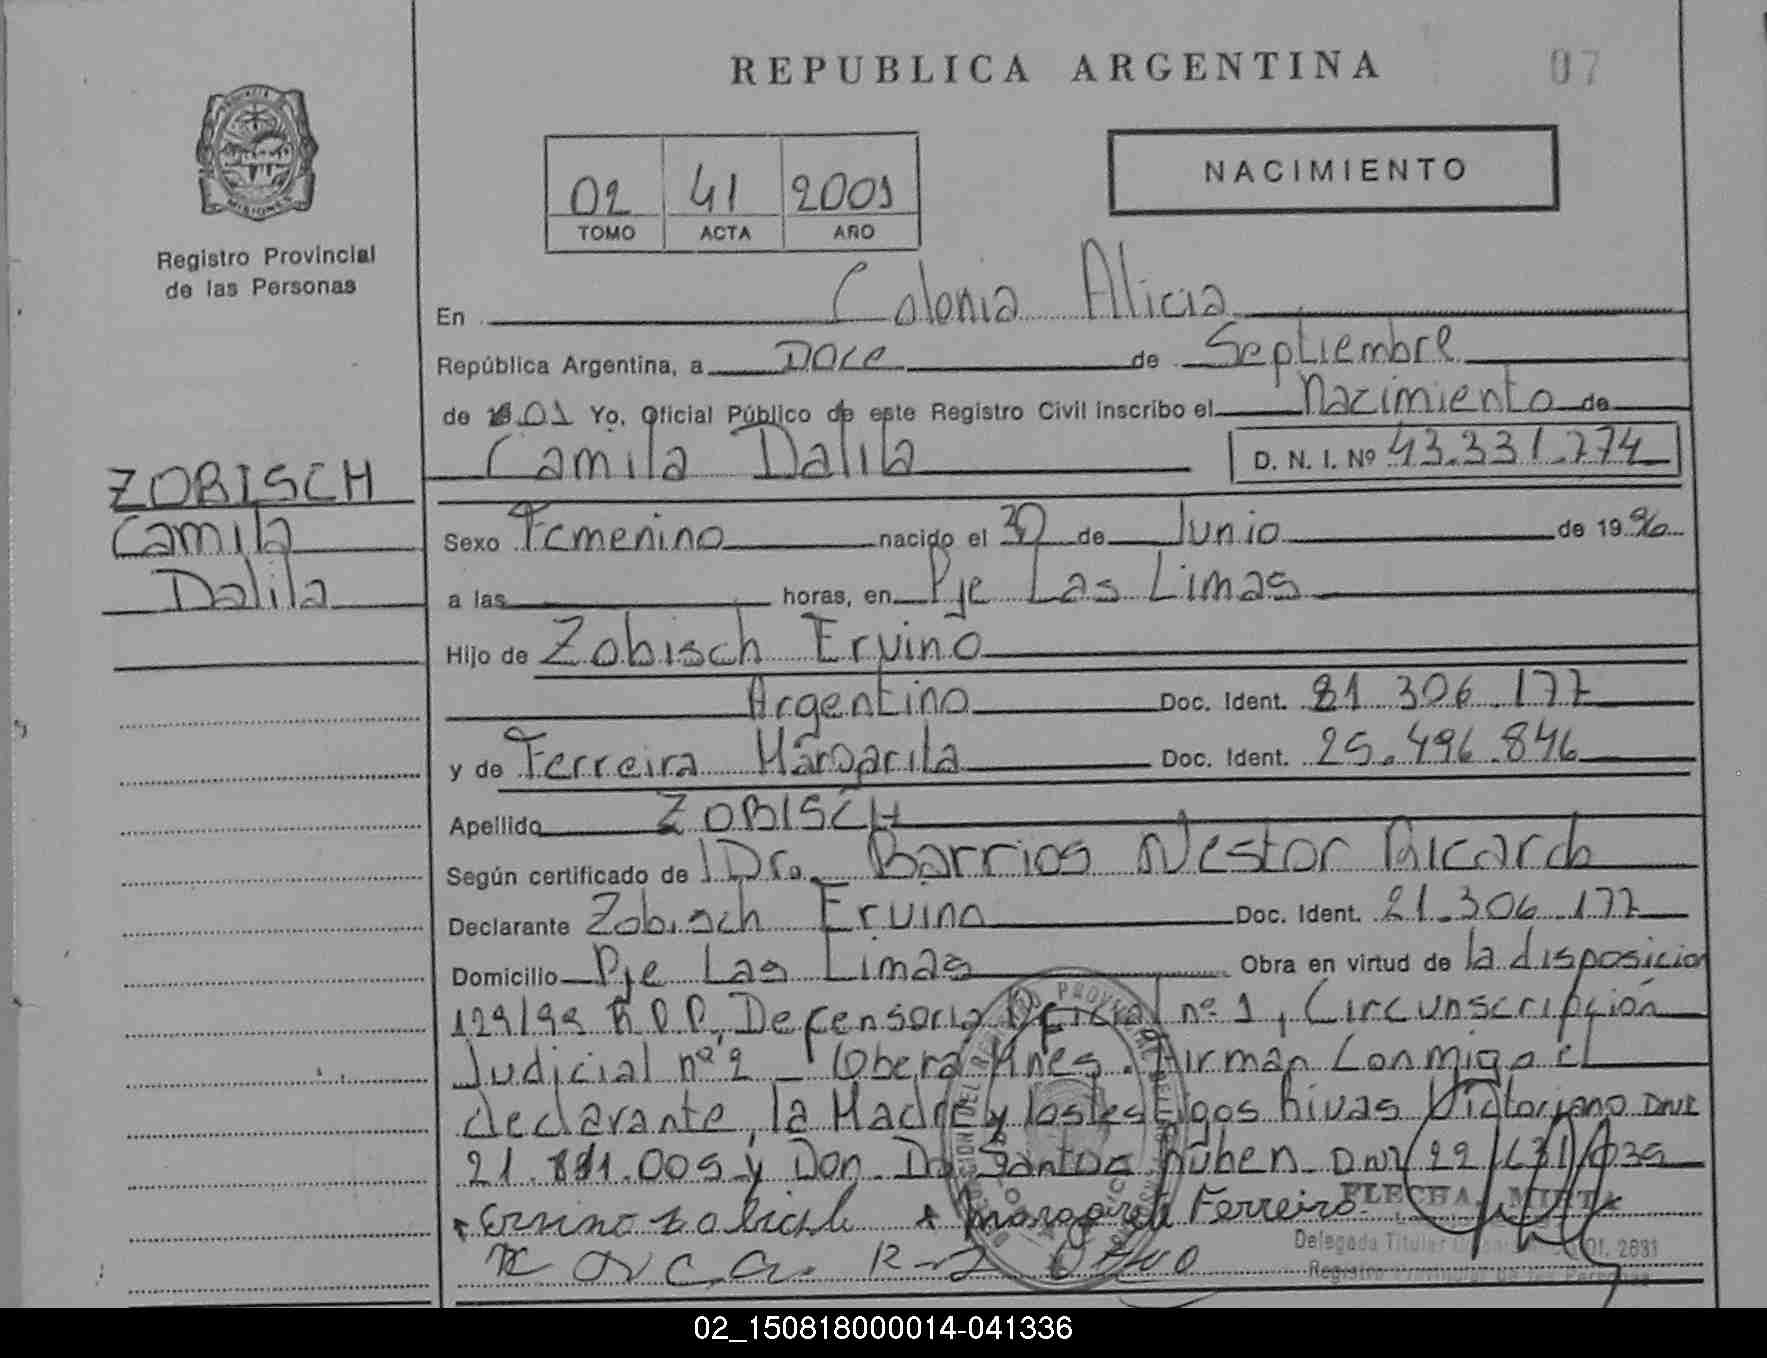 REPUBLICA ARGENTINA
07
Registro Provincial
de las Personas
02 41 2001
TOMO ACTA AÑO
NACIMIENTO
En Colonia Alicia
República Argentina, a Doce de Septiembre
de 01 Yo, Oficial Público de este Registro Civil inscribo el Nacimiento de
Camila Dalila D. N. I. Nº 43.331.774
ZOBISCH
Camila
Dalila
Sexo Femenino nacido el 30 de Junio de 1996
a las horas, en Pje Las Limas
Hijo de Zobisch Ervino
Argentino Doc. Ident. 21.306.177
y de Ferreira Margarita Doc. Ident. 25.496.846
Apellido ZOBISCH
Según certificado de Dr. Barrios Nestor Ricardo
Declarante Zobisch Ervino Doc. Ident. 21.306.177
Domicilio Pje Las Limas Obra en virtud de la disposicion
129/99 R.P.P, Defensoria Oficial nº 1, Circunscripción
Judicial nº 2 - Obera Mnes. Firman Conmigo el
declarante, la Madre y los testigos Rivas Victoriano DNI
y Don Do Santos Ruben DNI
Ervino Zobisch Margarita Ferreira
FLECHA, MIRTA
Delegada Titular Of. 2631
Registro Provincial de las Personas
02_150818000014-041336